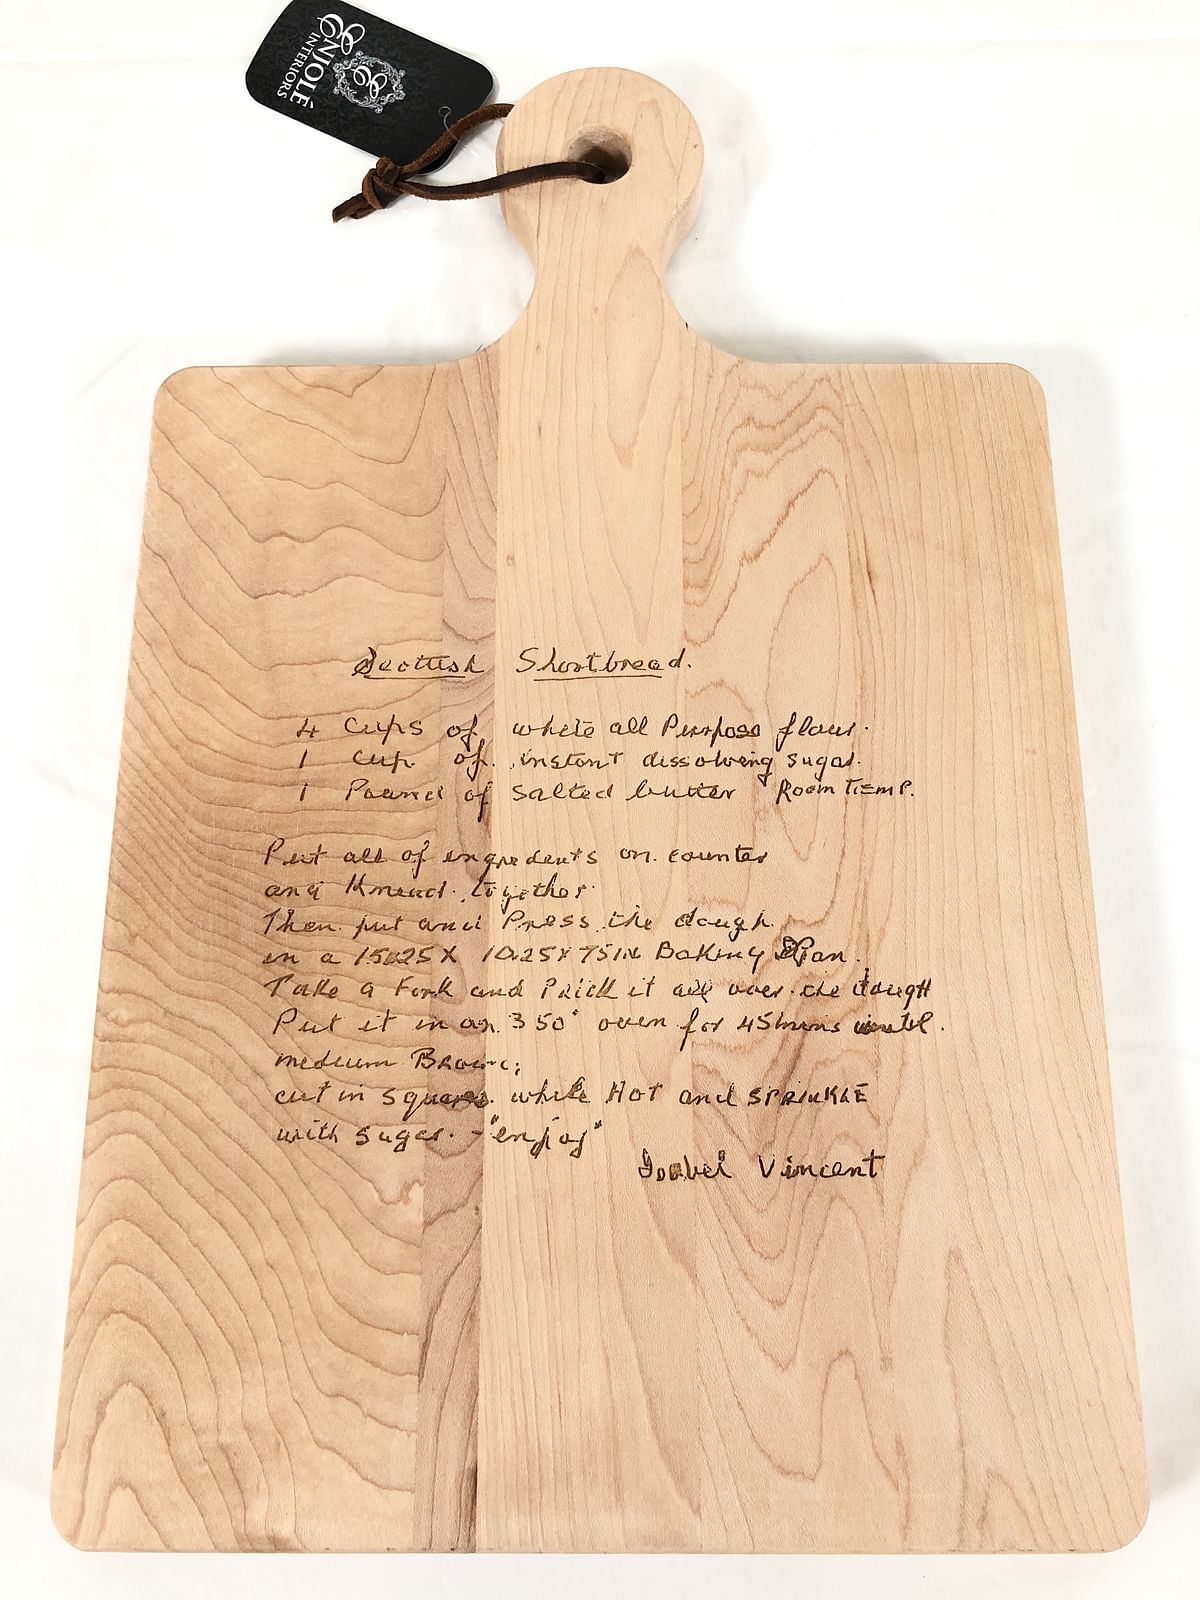 ENJOLÉ
INTERIORS
Scottish Shortbread.
4 Cups of white all Purpose flour.
1 Cup of instant dissolving sugar.
1 Pound of salted butter Room Temp.
Put all of ingredents on counter
and Knead together
Then put and Press the dough
in a 15.25 X 10.25 X 75 IN Baking Pan.
Take a Fork and Prick it all over the dough
Put it in an 350° oven for 45 mins until.
medium Brown;
cut in squares while Hot and SPRINKLE
with sugar. - "enjoy"
Isabel Vincent